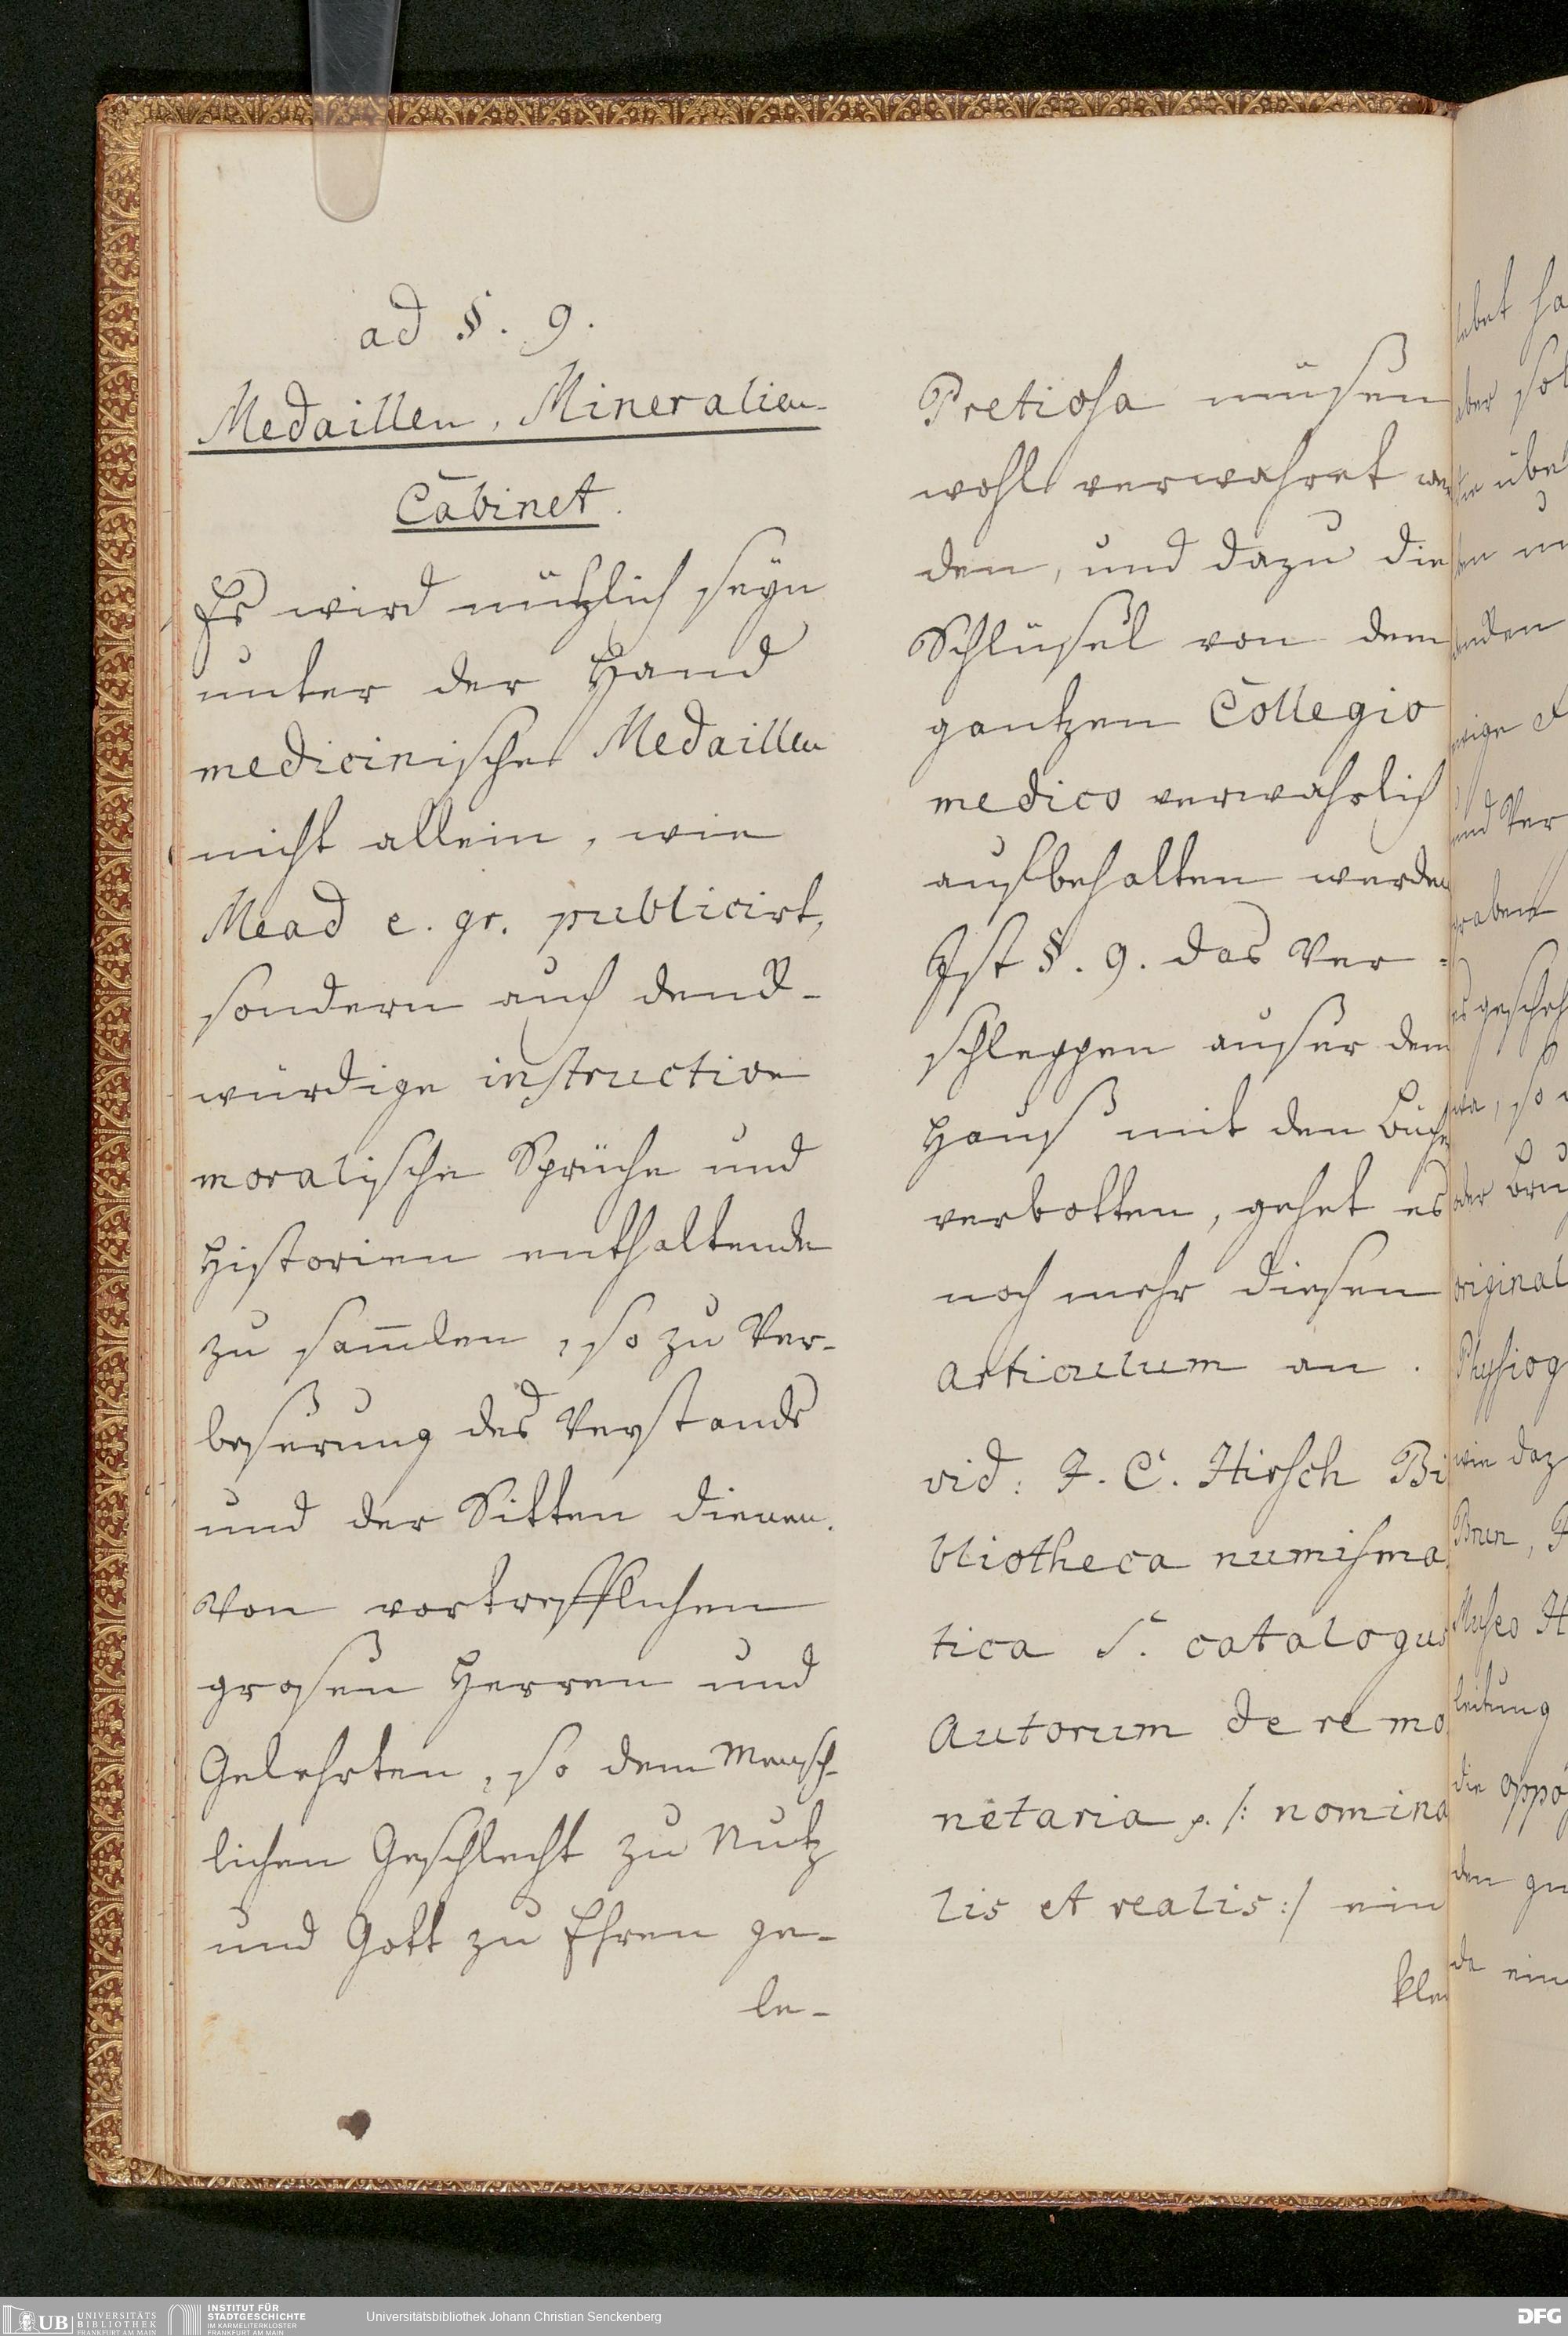 ad §. 9.
Medaillen, Mineralien-
Cabinet.
Es wird nützlich seÿn
unter der Hand
medicinische Medaillen
nicht allein, wie
Mead e. gr. publicirt,
sondern auch denck-
würdige instructive
moralische Sprüche und
Historien enthaltende
zu sam̄len, so zu Ver-
beserung des Verstands
und der Sitten dienen.
Von vortrefflichen
grosen Herren und
Gelehrten, so dem Mensch-
lichen Geschlecht zu Nutz
und Gott zu Ehren ge-
le-
Pretiosa müsen
wohl verwahret wer
den, und dazu die
Schlüsel von dem
gantzen Collegio
medico verwahrlich
aufbehalten werden
Ist §. 9. das Ver-
schleppen auser dem
Hauß mit den Büche
verbotten, gehet es
noch mehr diesen
articulum an.
vid: J. C. Hirsch Bi
bliotheca numisma
tica s. catalogus
Autorum de re mo
netaria p. /: nomina
lis et realis :/ ein
klei
ebet ha
aber sol
die übe
anden
und Ver
graben
es gescheh
oder
original
Physiog
wie daz
Museo H
leitung
die
den
de ein
UB UNIVERSITÄTS
BIBLIOTHEK
FRANKFURT AM MAIN
INSTITUT FÜR
STADTGESCHICHTE
IM KARMELITERKLOSTER
FRANKFURT AM MAIN
Universitätsbibliothek Johann Christian Senckenberg
DFG